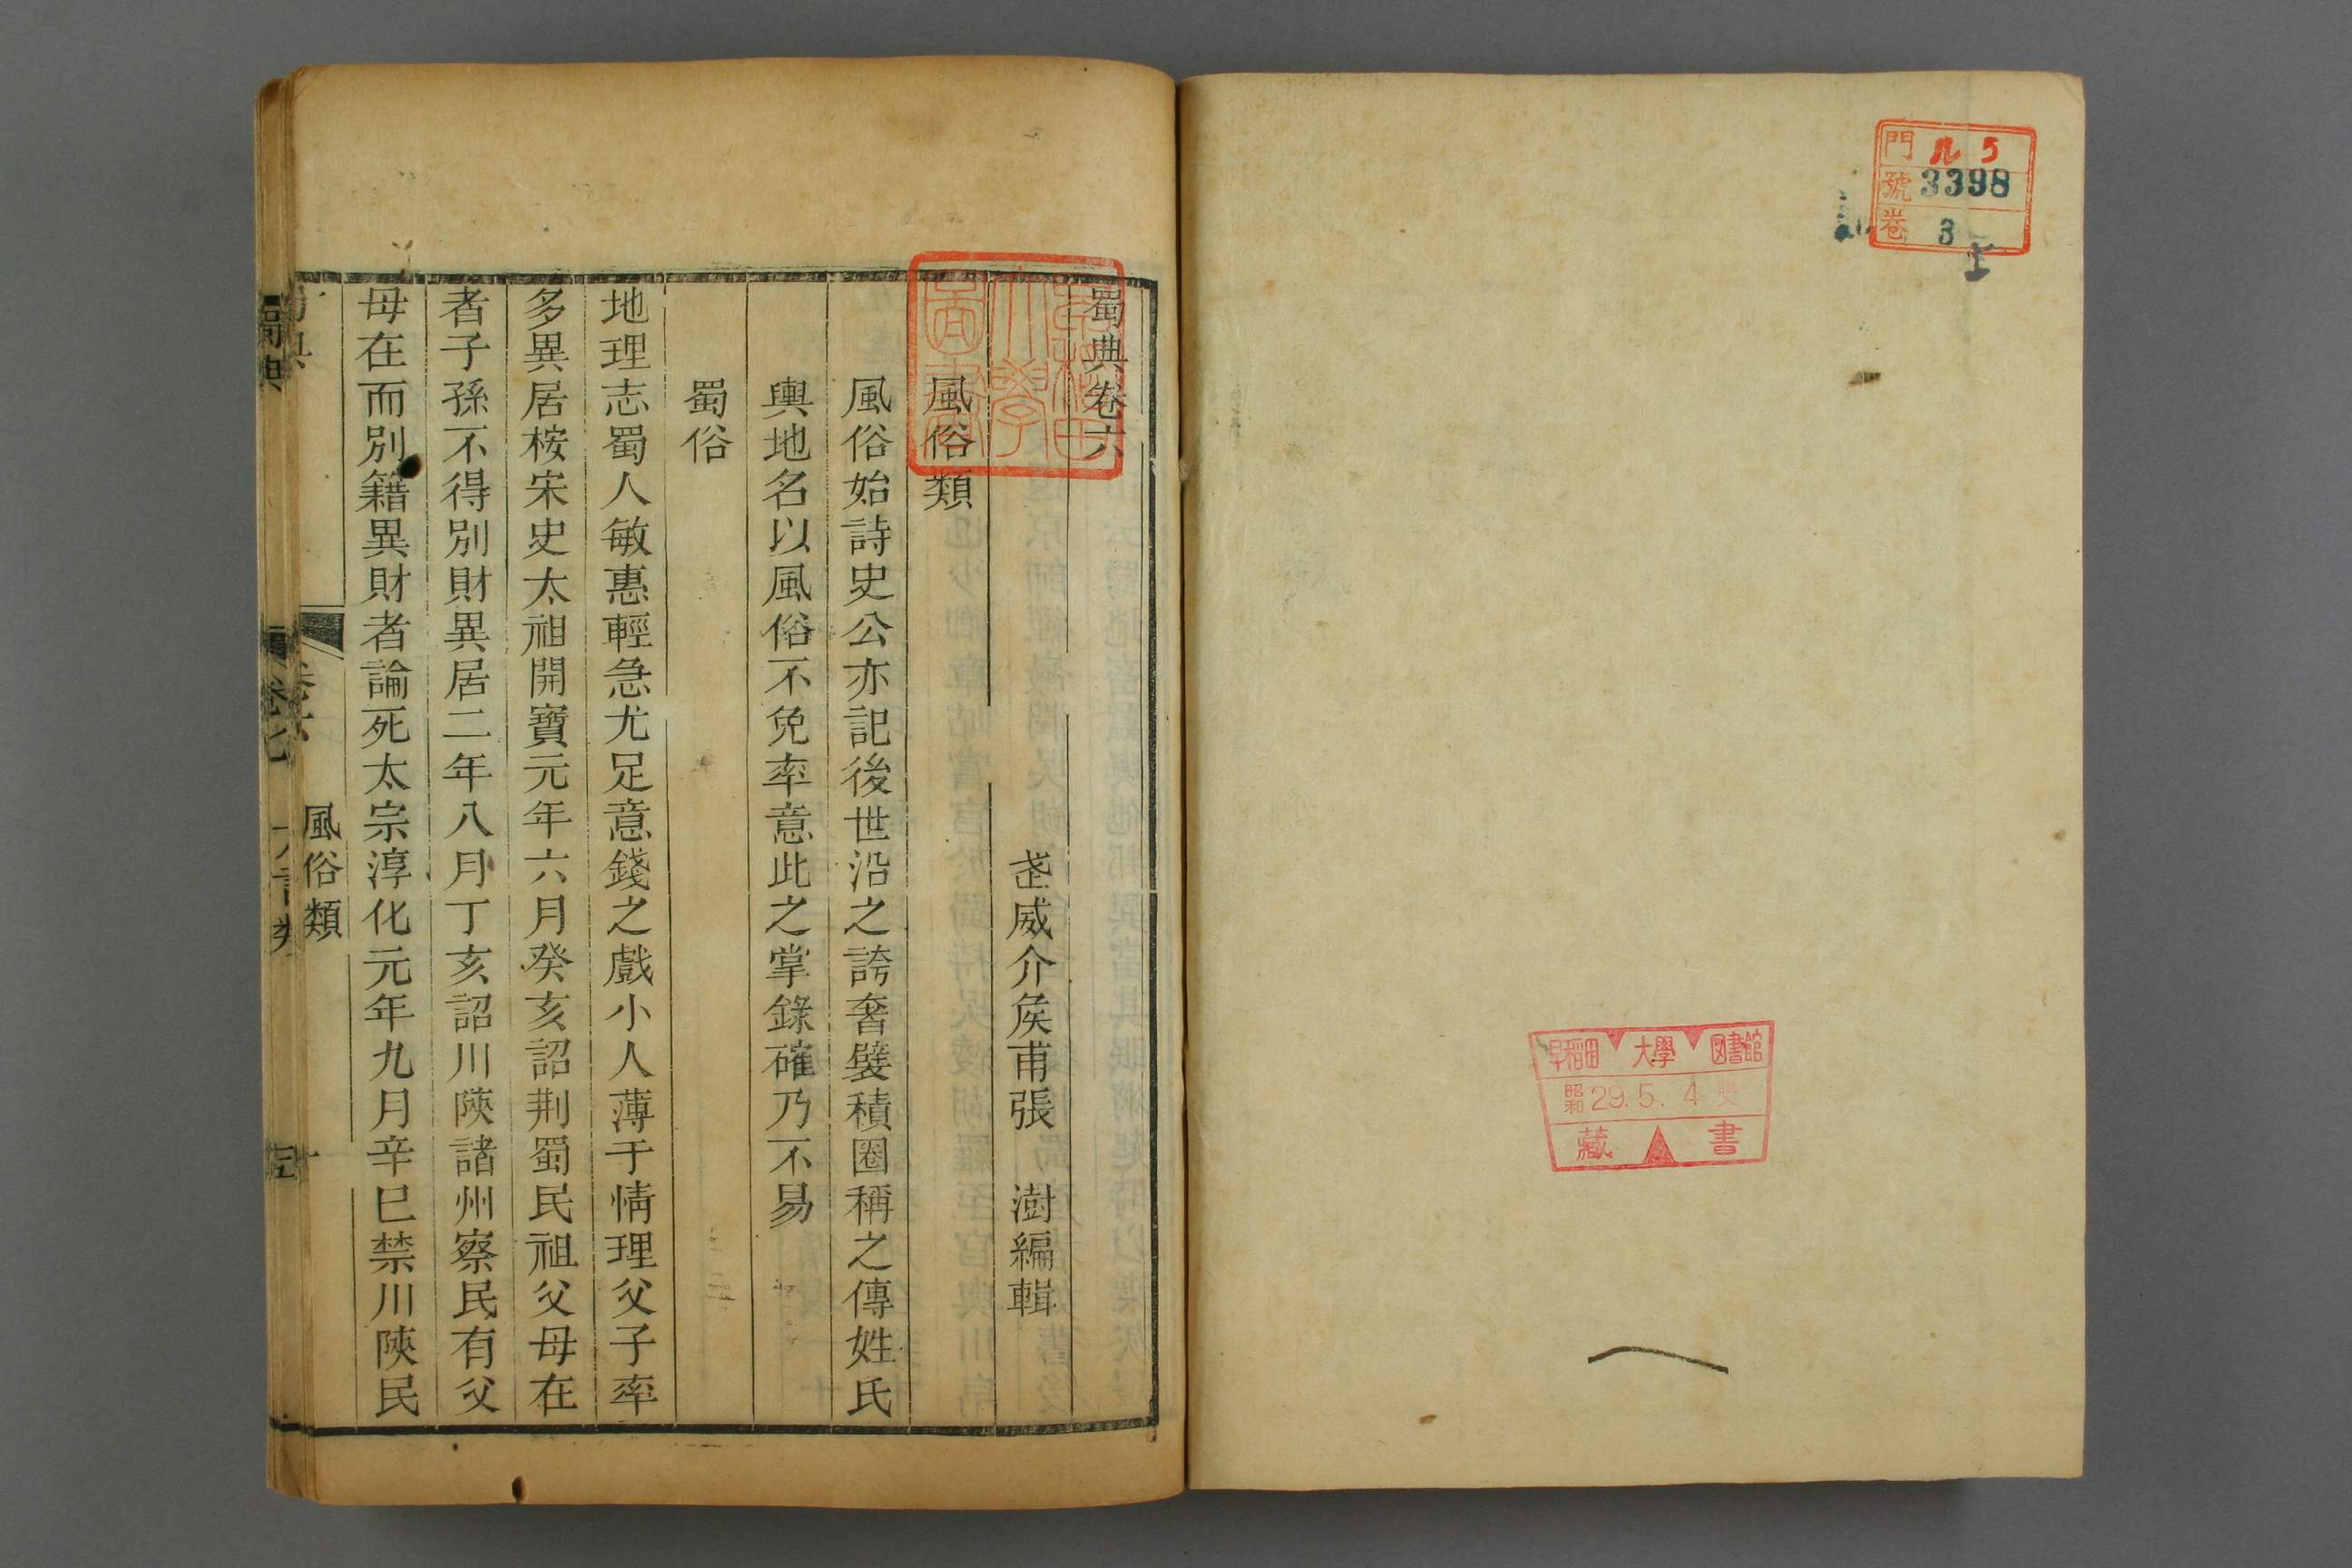 門 ル 5
號 3398
卷 3
早稲田大學図書館
昭和 29. 5. 4
藏書
蜀典卷六
武威介矦甫張　澍編輯
風俗類
風俗始詩史公亦記後世沿之誇奢襞積圈稱之傳姓氏
輿地名以風俗不免率意此之掌錄確乃不易
蜀俗
地理志蜀人敏惠輕急尤足意錢之戲小人薄于情理父子率
多異居桉宋史太祖開寶元年六月癸亥詔荆蜀民祖父母在
者子孫不得別財異居二年八月丁亥詔川陝諸州察民有父
母在而別籍異財者論死太宗淳化元年九月辛巳禁川陝民
風俗類